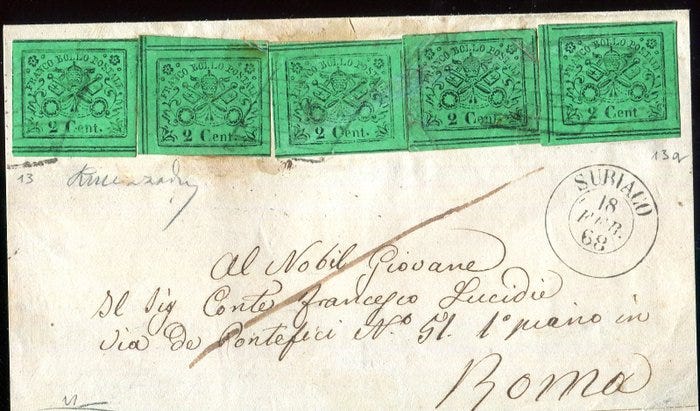 FRANCO BOLLO POSTALE FRANCO BOLLO POSTALE FRANCO BOLLO POSTALE FRANCO BOLLO POSTALE FRANCO BOLLO POSTALE
2 Cent. 2 Cent. 2 Cent. 2 Cent. 2 Cent.
13
13a
SUBIACO
18
FEB.
68
Al Nobil Giovane
Il Sig Conte Francesco Lucidie
via de Pontefici N.° 51. 1° piano in
Roma